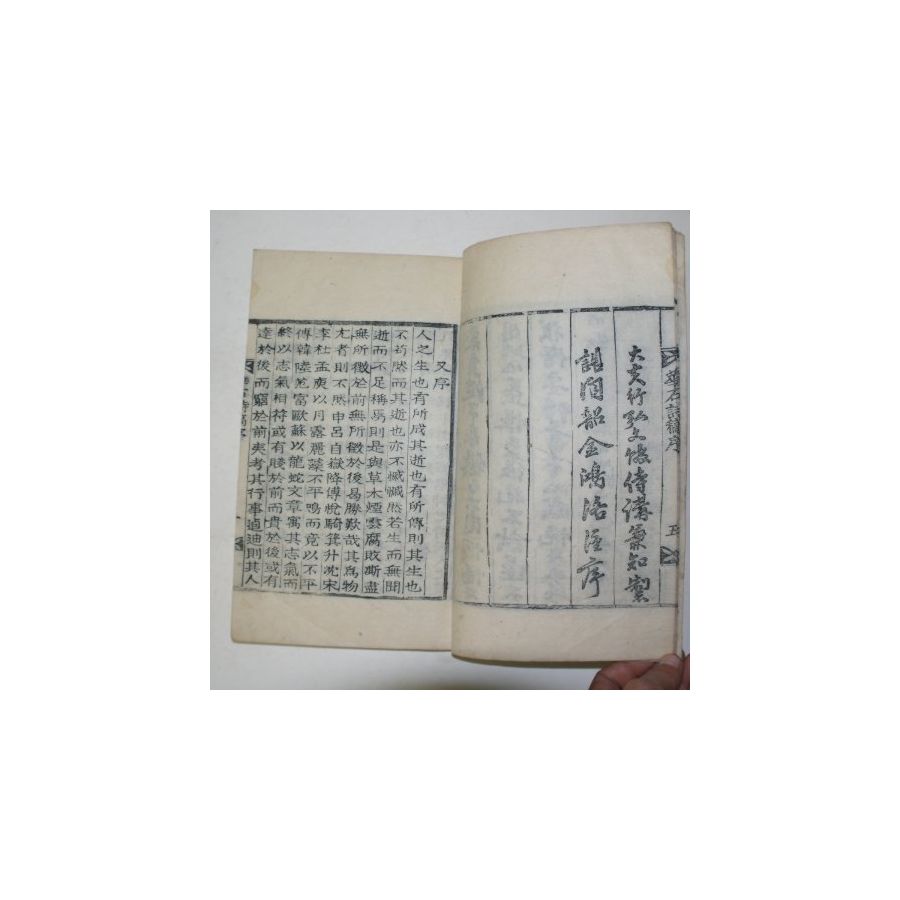 華石詩稿序 五
大夫行弘文館侍講兼知製
詔聞韶金鴻洛謹序
又序
人之生也有所成其逝也有所傳則其生也
不苟然而其逝也亦不慽慽然若生而無聞
逝而不足稱焉則是與草木煙雲腐敗澌盡
無所徵於前無所徵於後曷勝歎哉其爲物
尤者則不然申呂自嶽降傅悅騎箕升沈宋
李杜孟東以月露麗藻不平鳴而竟以不平
傳韓陸范富歐蘇以龍蛇文章寓其志氣而
終以志氣相符或有賤於前而貴於後或有
達於後而窮於前夫考其行事迪則其人